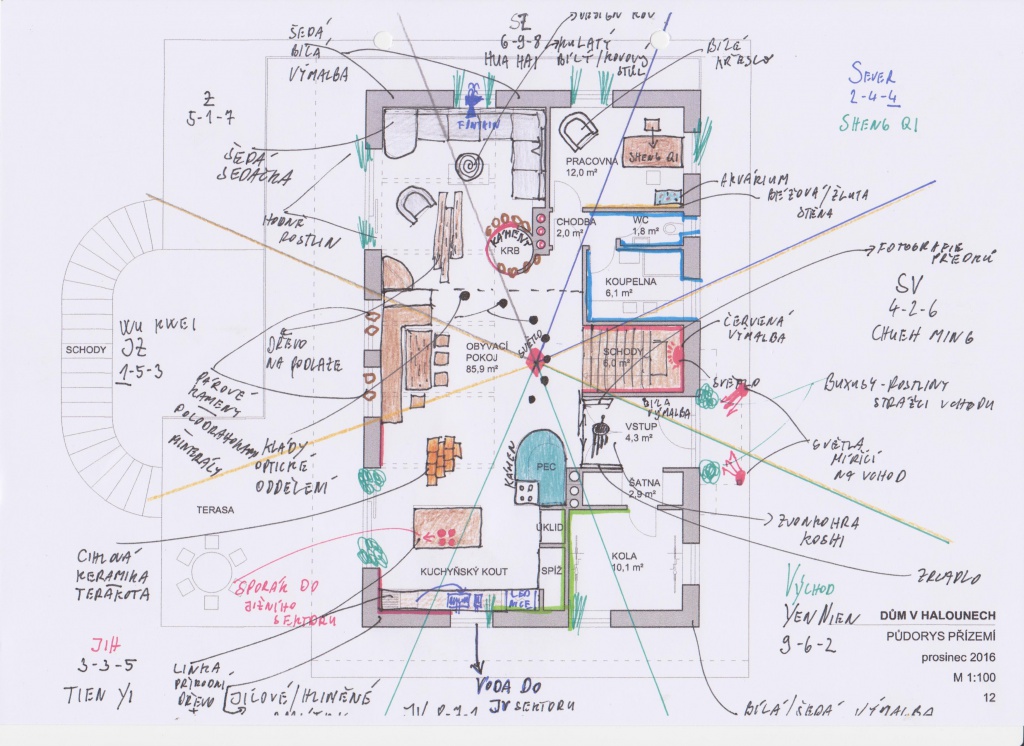 ŠEDÁ/
BÍLÁ
VÝMALBA
SZ
6-9-8
HUA HAI
KULATÝ
BÍLÝ/KOVOVÝ
STŮL
BÍLÉ
KŘESLO
SEVER
2-4-4
SHENG QI
Z
5-1-7
ŠEDÁ
SEDAČKA
HODNĚ
ROSTLIN
FONTÁNA
PRACOVNA
12,0 m²
SHENG QI
AKVÁRIUM
BÉŽOVÁ/ŽLUTÁ
STĚNA
KAMENY
KRB
CHODBA
2,0 m²
WC
1,8 m²
KOUPELNA
6,1 m²
FOTOGRAFIE
PŘEDKŮ
SV
4-2-6
CHUEH MING
SCHODY
WU KWEI
JZ
1-5-3
DŘEVO
NA PODLAZE
OBÝVACÍ
POKOJ
85,9 m²
SVĚTLO
SCHODY
6,0 m²
ČERVENÁ
VÝMALBA
SVĚTLO
PÁROVÉ
KAMENY
MINERÁLY
KLÁDY
OPTICKÉ
ODDĚLENÍ
BÍLÁ
VÝMALBA
VSTUP
4,3 m²
BUXUSY-ROSTLINY
STRÁŽCI VCHODU
SVĚTLA
MÍŘÍCÍ
NA VCHOD
KAMEN
PEC
ŠATNA
2,9 m²
TERASA
ZVONKOHRA
KOSHI
CIHLOVÁ
KERAMIKA
TERAKOTA
SPORÁK DO
JIŽNÍHO
SEKTORU
KUCHYŇSKÝ KOUT
ÚKLID
SPÍŽ
KOLA
10,1 m²
ZRCADLO
VÝCHOD
YEN NIEN
9-6-2
DŮM V HALOUNECH
PŮDORYS PŘÍZEMÍ
prosinec 2016
M 1:100
12
JIH
3-3-5
TIEN YI
LINKA
PŘÍRODNÍ
DŘEVO
+
JÍLOVÉ/HLINĚNÉ
VODA DO
JV SEKTORU
BÍLÁ/ŠEDÁ VÝMALBA